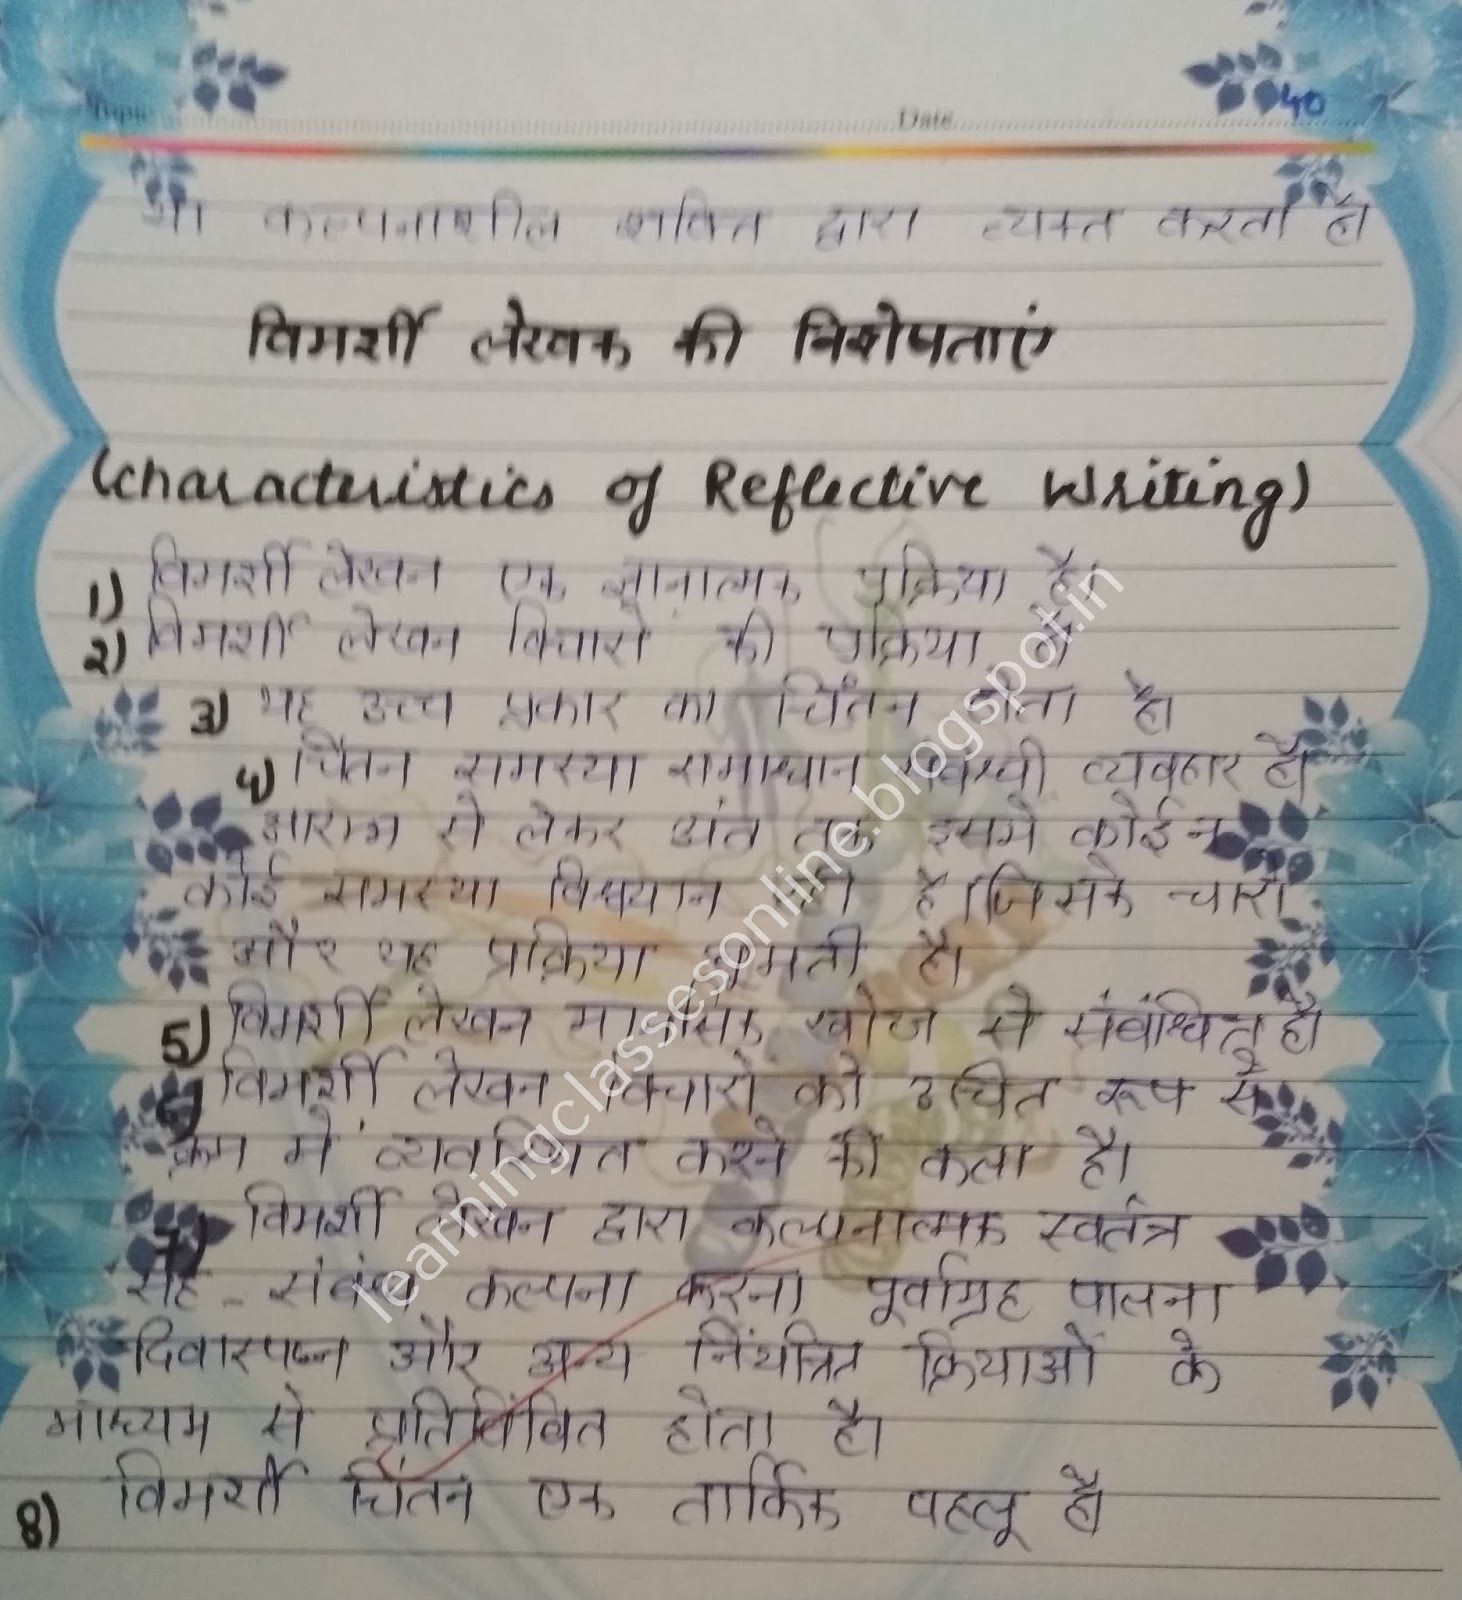 Date 40
या कल्पनाशील शक्ति द्वारा व्यक्त करता है।
विमर्शी लेखक की विशेषताएं
(Characteristics of Reflective Writing)
1) विमर्शी लेखन एक ज्ञानात्मक प्रक्रिया है।
2) विमर्शी लेखन विचारो की प्रक्रिया है
3) यह उच्च प्रकार का चिंतन होता है।
4) चिंतन समस्या समाधान संबंधी व्यवहार है।
आरम्भ से लेकर अंत तक इसमें कोई न
कोई समस्या विधयान रहती है। जिसके चारो
और यह प्रक्रिया घूमती है।
5) विमर्शी लेखन मानसिक खोज से संबंधित है।
6) विमर्शी लेखन विचारो को उचित रूप से
क्रम में व्यवस्थित करने की कला है।
7) विमर्शी लेखन द्वारा कल्पनात्मक स्वतंत्र
सह - संबंध कल्पना करना पूर्वाग्रह पालना
दिवास्पप्न और अन्य नियंत्रित क्रियाओं के
माध्यम से प्रतिबिंवित होता है।
8) विमर्शी चिंतन एक तार्किक पहलू है।
learningclassesonline.blogspot.in